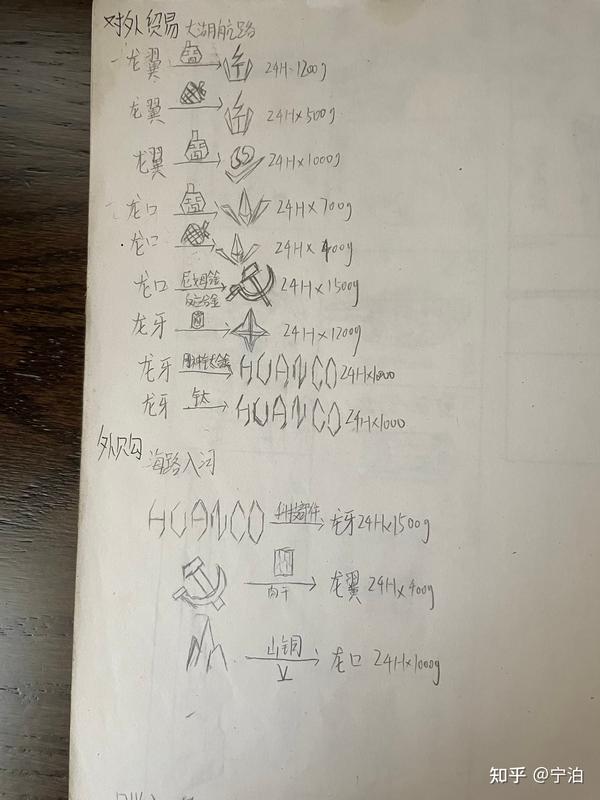 对外贸易 大湖航路
龙翼 24H·1200g
龙翼 24H×500g
龙翼 24H×1000g
龙口 24H×700g
龙口 24H×400g
龙口 24H×1500g
龙牙 24H×1200g
龙牙 HUANCO 24H×1000
龙牙 钛 HUANCO 24H×1000
外贸 海路入河
HUANCO 科技部件 龙牙 24H×1500g
肉干 龙翼 24H×400g
山铜 V 龙口 24H×1000g
知乎 @宁泊